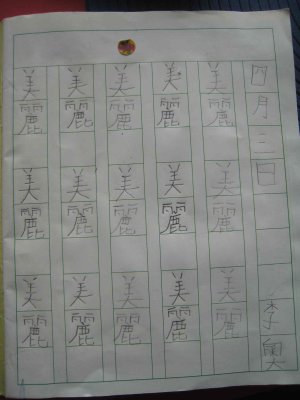 四月三日 李奧
美麗 美麗 美麗
美麗 美麗 美麗
美麗 美麗 美麗
美麗 美麗 美麗
美麗 美麗 美麗